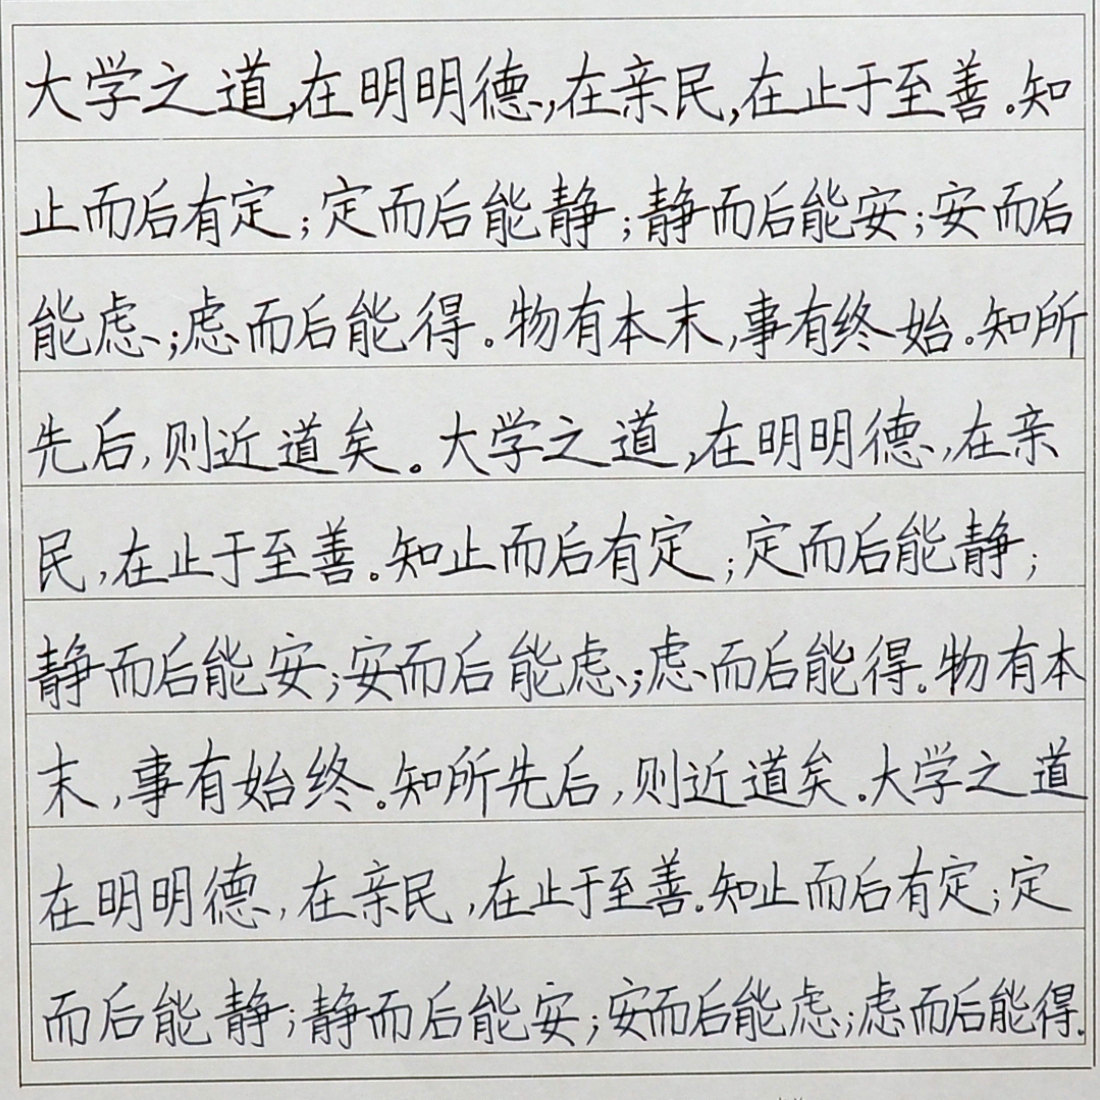 大学之道,在明明德,在亲民,在止于至善。知
止而后有定;定而后能静;静而后能安;安而后
能虑;虑而后能得。物有本末,事有终始。知所
先后,则近道矣。大学之道,在明明德,在亲
民,在止于至善。知止而后有定;定而后能静;
静而后能安;安而后能虑;虑而后能得。物有本
末,事有始终。知所先后,则近道矣。大学之道
在明明德,在亲民,在止于至善。知止而后有定;定
而后能静;静而后能安;安而后能虑;虑而后能得.